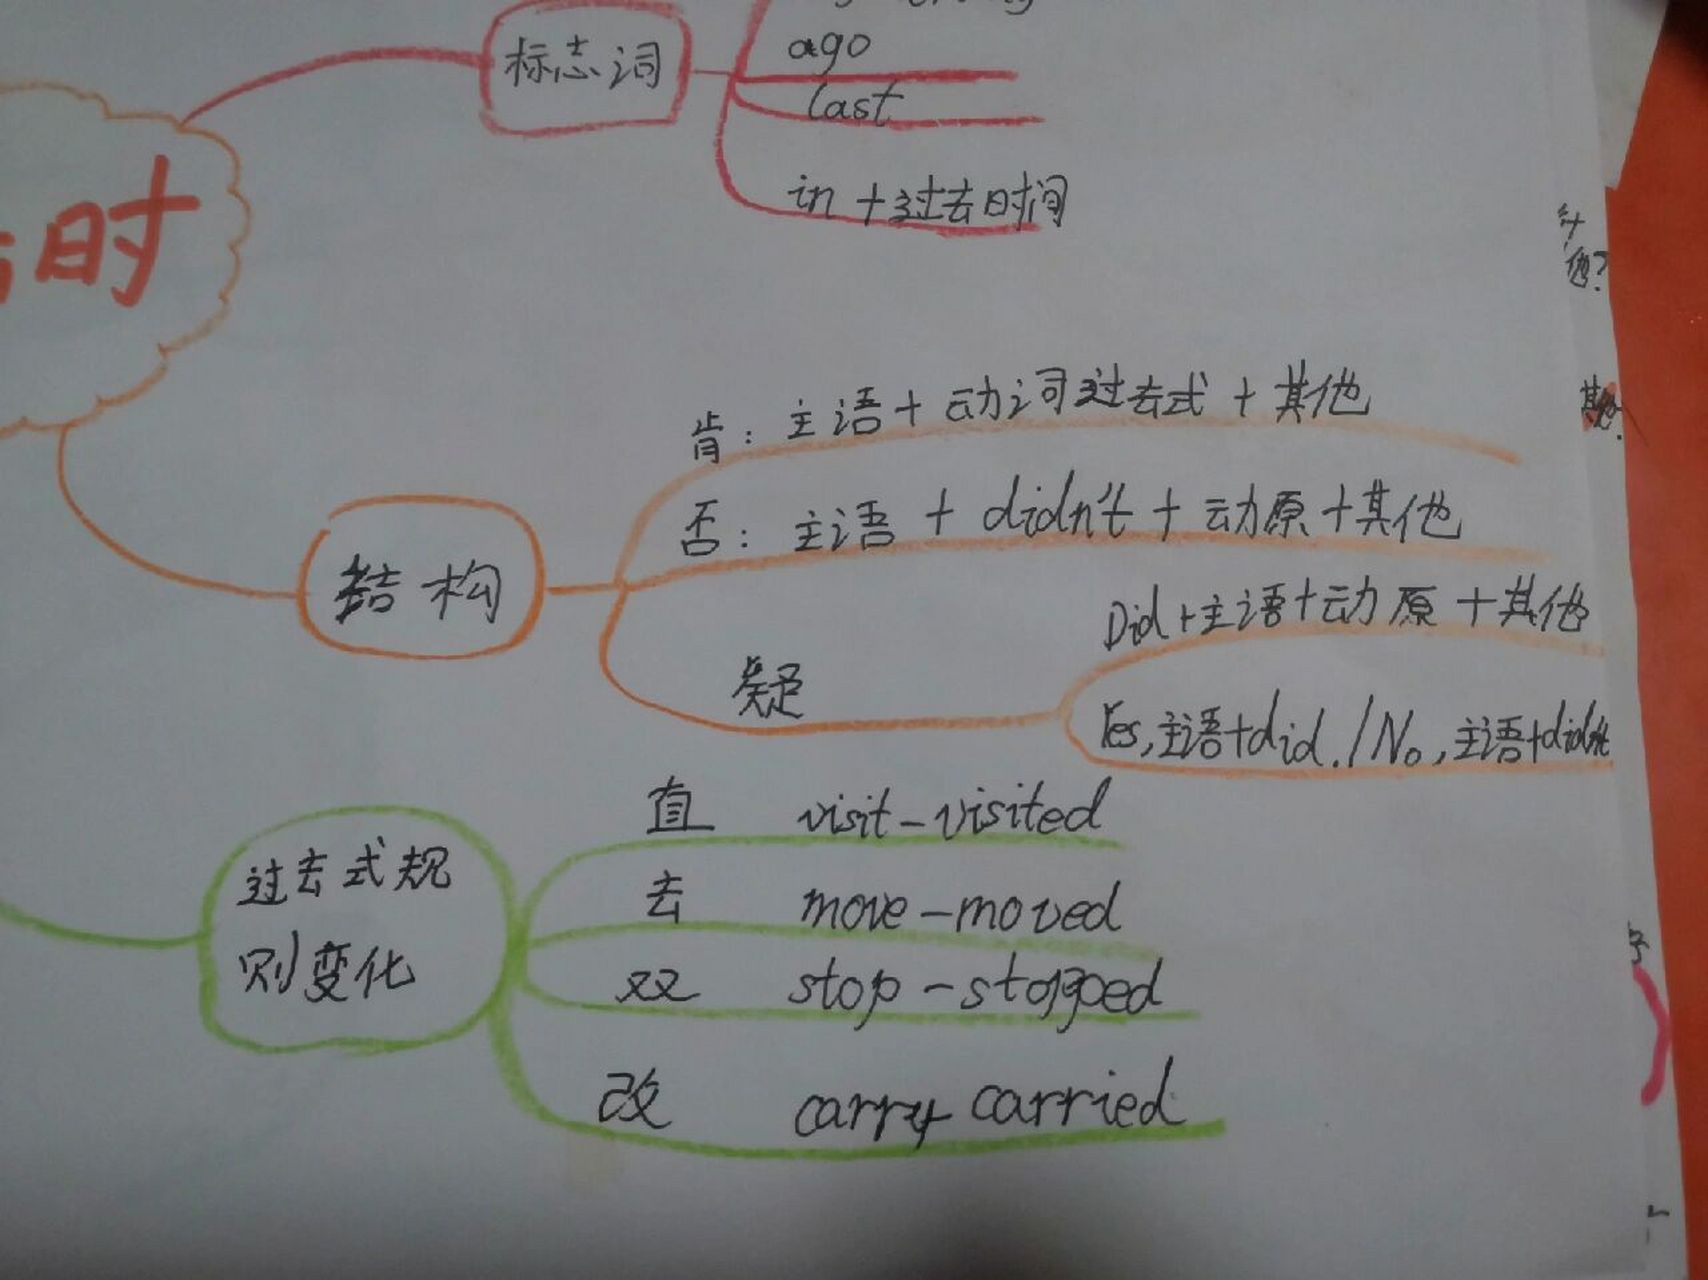 标志词
ago
last
in + 过去时间
时
肯：主语 + 动词过去式 + 其他
否：主语 + didn't + 动原 + 其他
结构
疑
Did + 主语 + 动原 + 其他
Yes, 主语 + did. / No, 主语 + didn't
过去式规
则变化
直 visit - visited
去 move - moved
双 stop - stopped
改 carry carried